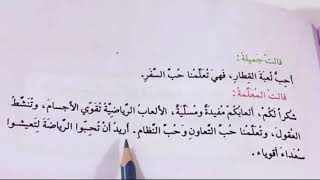 قالَتْ جَميلَةُ :
أُحِبُّ لُعْبَةَ القِطارِ، فَهِيَ تُعَلِّمُنا حُبَّ السَّفَرِ.
قالَتِ المُعَلِّمَةُ :
شُكْراً لَكُمْ، أَلْعابُكُمْ مُفيدَةٌ وَمُسَلِّيَةٌ، الأَلْعابُ الرِّياضِيَّةُ تُقَوِّي الأَجْسامَ، وَتُنَشِّطُ
العُقولَ، وَتُعَلِّمُنا حُبَّ التَّعاوُنِ وَحُبَّ النِّظامِ. أُريدُ أَنْ تُحِبُّوا الرِّياضَةَ لِتَعيشوا
سُعَداءَ أَقْوِياءَ.